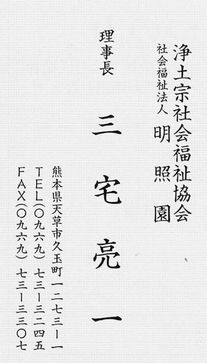 浄土宗社会福祉協会
社会福祉法人 明照園
理事長 三宅亮一
熊本県天草市久玉町一二七三ー一
TEL(〇九六九) 七三ー三二四五
FAX(〇九六九) 七三ー三三〇七